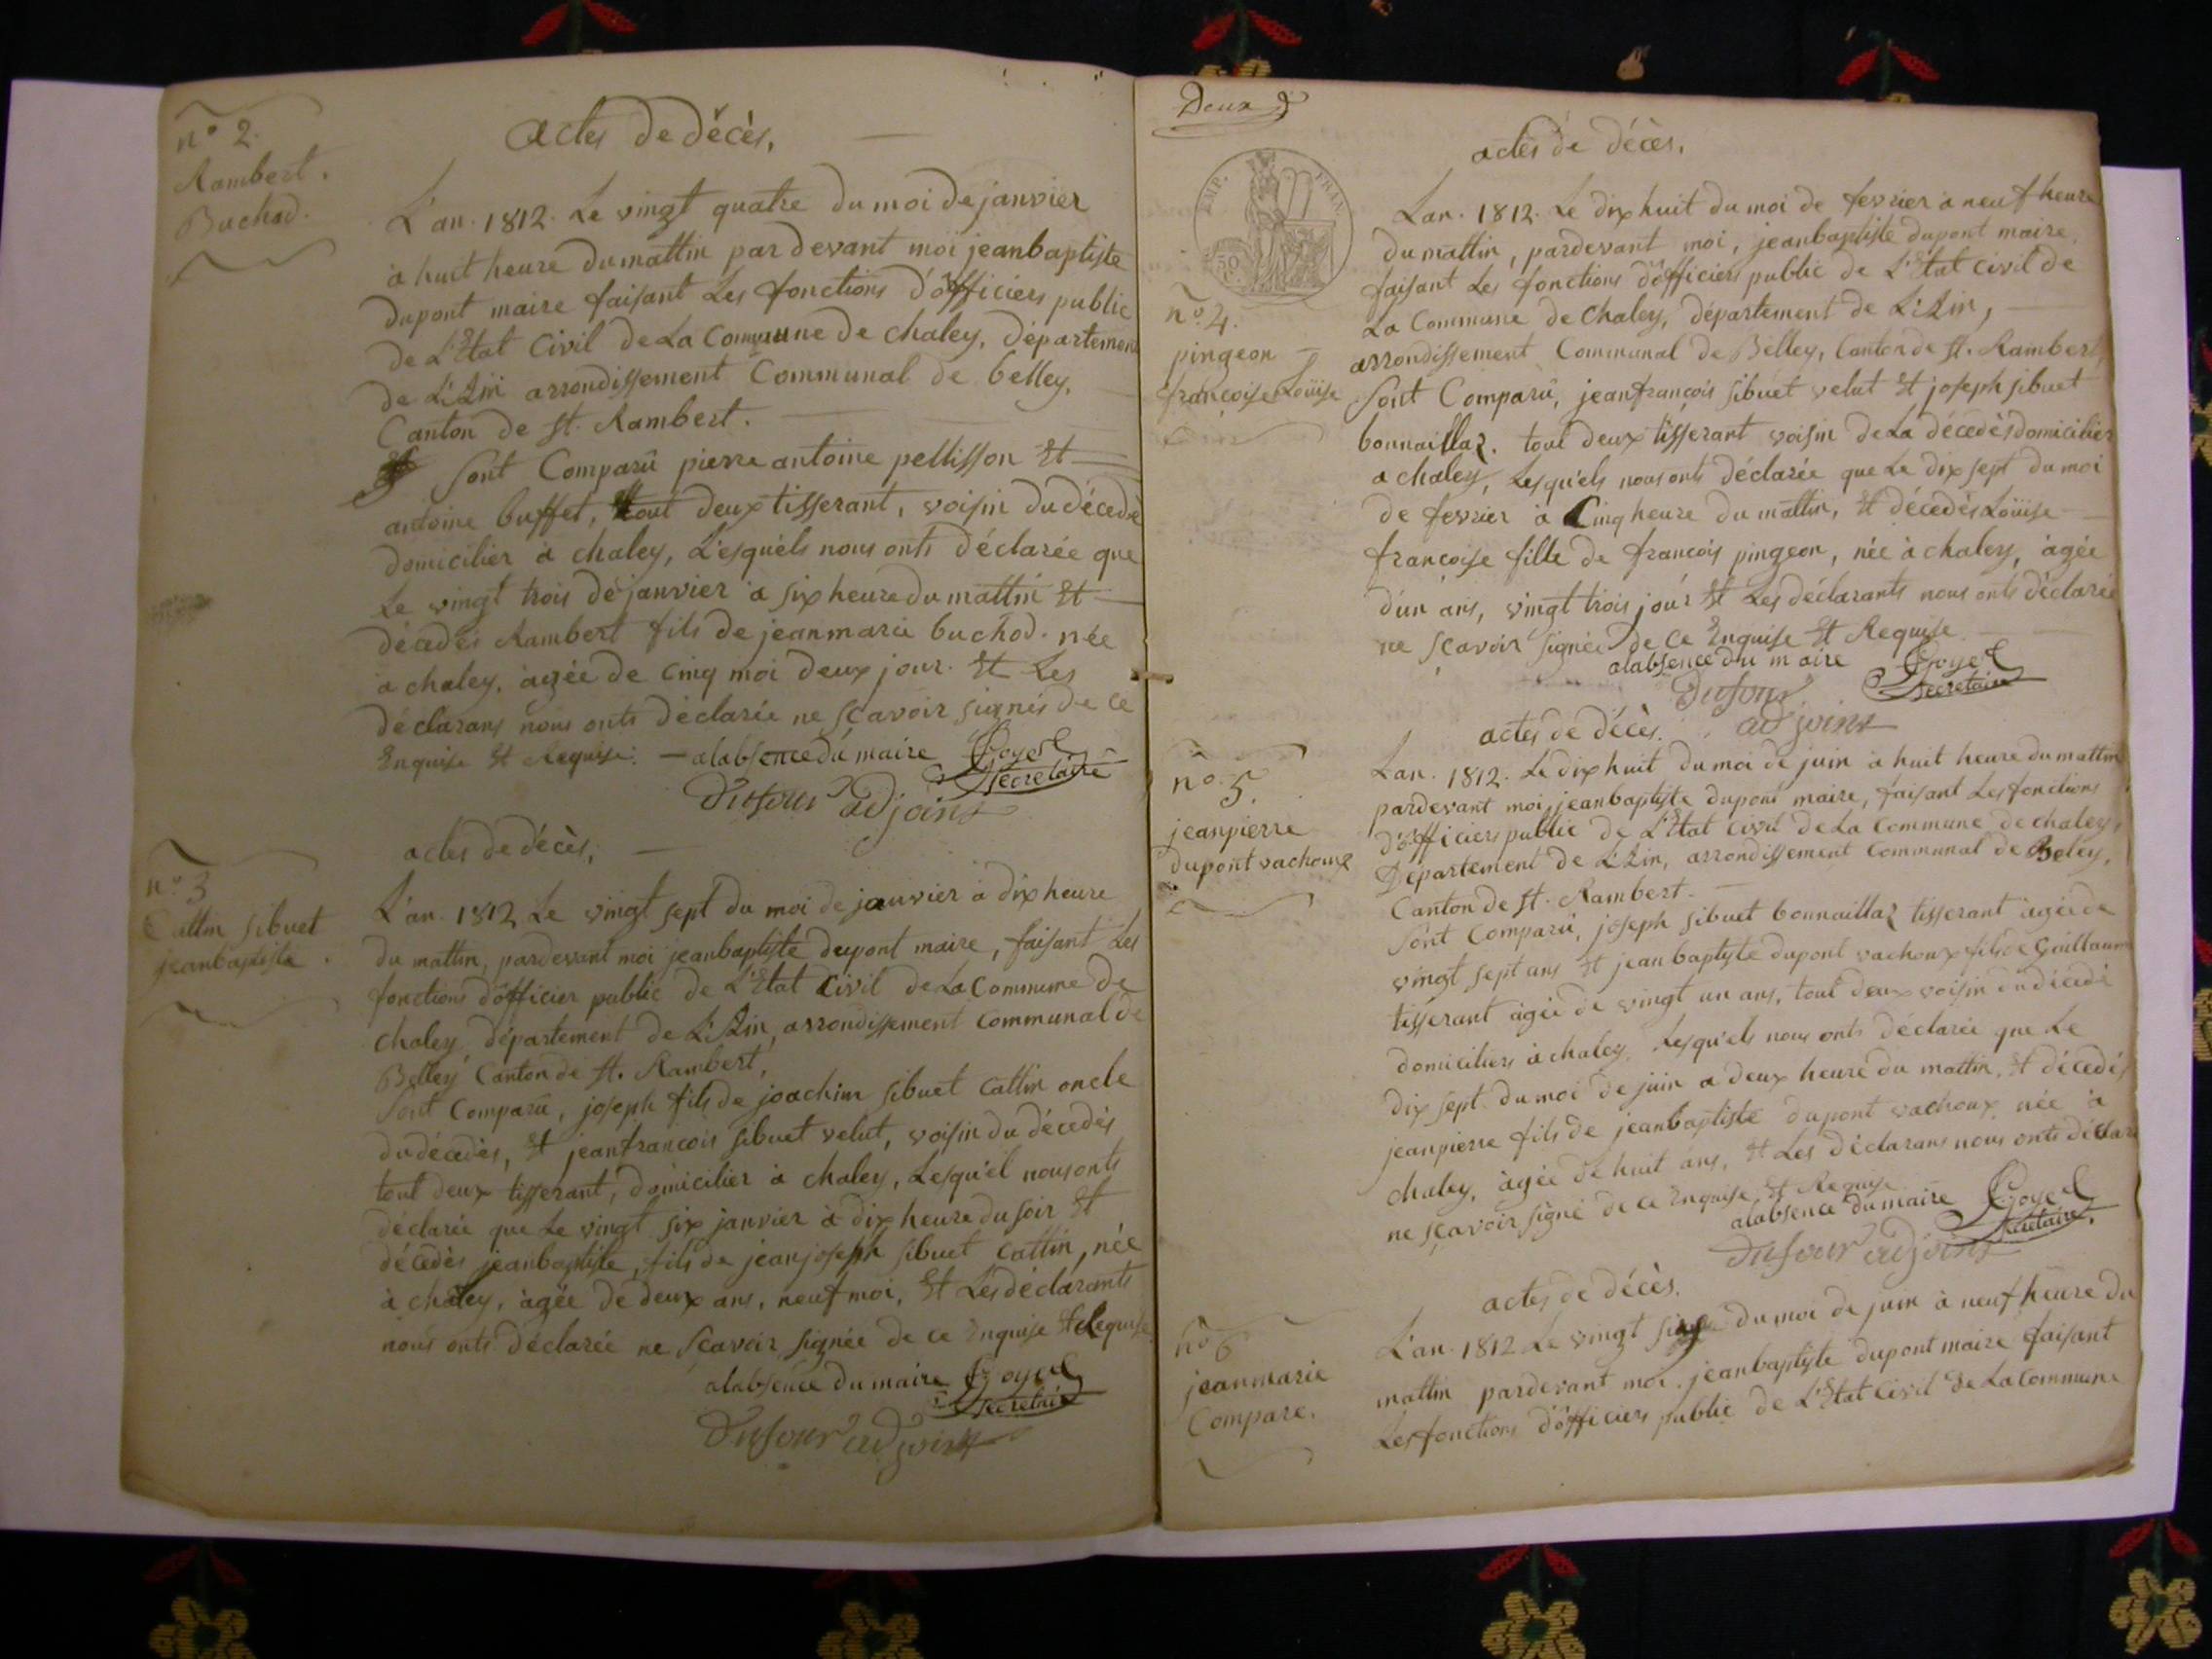 n° 2.
Rambert.
Buchod.
actes de décès,
L'an. 1812. Le vingt quatre du moi de janvier
à huit heure du mattin par devant moi jeanbaptiste
dupont maire faisant Les fonctions d'officiers public
de L'Etat Civil de La Commune de chaley, département
de L'Ain arrondissement Communal de belley,
Canton de st. Rambert.
Sont Comparû pierre antoine pellisson Et
antoine buffet, tout deux tisserant, voisin du décedé
domicilier à chaley, L'esquéls nous onts déclarée que
Le vingt trois de janvier a six heure du mattin Et
décedés Rambert fils de jeanmarie buchod. née
a chaley, àgée de cinq moi deux jour. Et Les
déclarans nous onts déclarée ne scavoir signés de ce
Enquise Et Requise: — alabsence du maire Goyet
secretaire
Dufour adjoint
n° 3
Cattin sibuet
jeanbaptiste.
actes de décès,
L'an. 1812 Le vingt sept du moi de janvier à dix heure
du mattin, pardevant moi jeanbaptiste dupont maire, faisant Les
fonctions d'officier public de L'Etat Civil de La Commune de
chaley, département de L'Ain, arrondissement Communal de
Belley Canton de st. Rambert,
Sont Comparû, joseph fils de joachim sibuet Cattin oncle
du décedés, Et jeanfrancois sibuet velut, voisin du décedés
tout deux tisserant, domicilier à chaley, Lesqu'el nous onts
déclarée que Le vingt six janvier à dix heure du soir Et
décedés jeanbaptiste, fils de jeanjoseph sibuet Cattin, née
à chaley, àgée de deux ans, neuf moi, Et Les déclarants
nous onts déclarée ne scavoir signée de ce Enquise Et Requise
alabsence du maire Goyet
secretaire
Dufour adjoint
Deux
EMP. FRAN.
50
n° 4.
pingeon
françoise Loüise
actes de décès,
L'an. 1812. Le dix huit du moi de fevrier à neuf heure
du mattin, pardevant moi, jeanbaptiste dupont maire,
faisant Les fonctions d'officiers public de L'Etat civil de
La Commune de Chaley, département de L'Ain,
arrondissement Communal de Belley, Canton de st. Rambert,
Sont Comparû, jeanfrancois sibuet velut Et joseph sibuet
bonnaillaz. tout deux tisserant voisin de La décedés domicilier
a chaley, Lesqu'els nous onts déclarée que Le dix sept du moi
de fevrier à Cinq heure du mattin, Et décedés Loüise
françoise fille de francois pingeon, née à chaley, àgée
d'un ans, vingt trois jour Et Les déclarants nous onts déclarée
ne scavoir signée de ce Enquise Et Requise
alabsence du maire Goyet
Dufour secretaire
adjoint
n° 5.
jeanpierre
dupont vachoux
actes de décès.
L'an. 1812. Le dix huit du moi de juin à huit heure du mattin
pardevant moi, jeanbaptiste dupont maire, faisant Les fonctions
d'officiers public de L'Etat civil de La Commune de chaley,
Département de L'Ain, arrondissement Communal de Beley,
Canton de st. Rambert.
Sont Comparû, joseph sibuet bonnaillaz tisserant àgée de
vingt sept ans Et jeanbaptiste dupont vachoux fils de Guillaume
tisserant àgée de vingt un ans, tout deux voisin du décedé
domiciliers à chaley, Lesqu'els nous onts déclarée que Le
dix sept du moi de juin a deux heure du mattin, Et décedés
jeanpierre fils de jeanbaptiste dupont vachoux, née à
chaley, àgée de huit ans, Et Les déclarans nous onts déclaré
ne scavoir signé de ce Enquise Et Requise
alabsence du maire Goyet
secretaire
Dufour adjoint
n° 6
jeanmarie
Compare.
actes de décès.
L'an. 1812 Le vingt du moi de juin à neuf heure du
mattin pardevant moi jeanbaptiste dupont maire faisant
Les fonctions d'officiers public de L'Etat Civil de La Commune